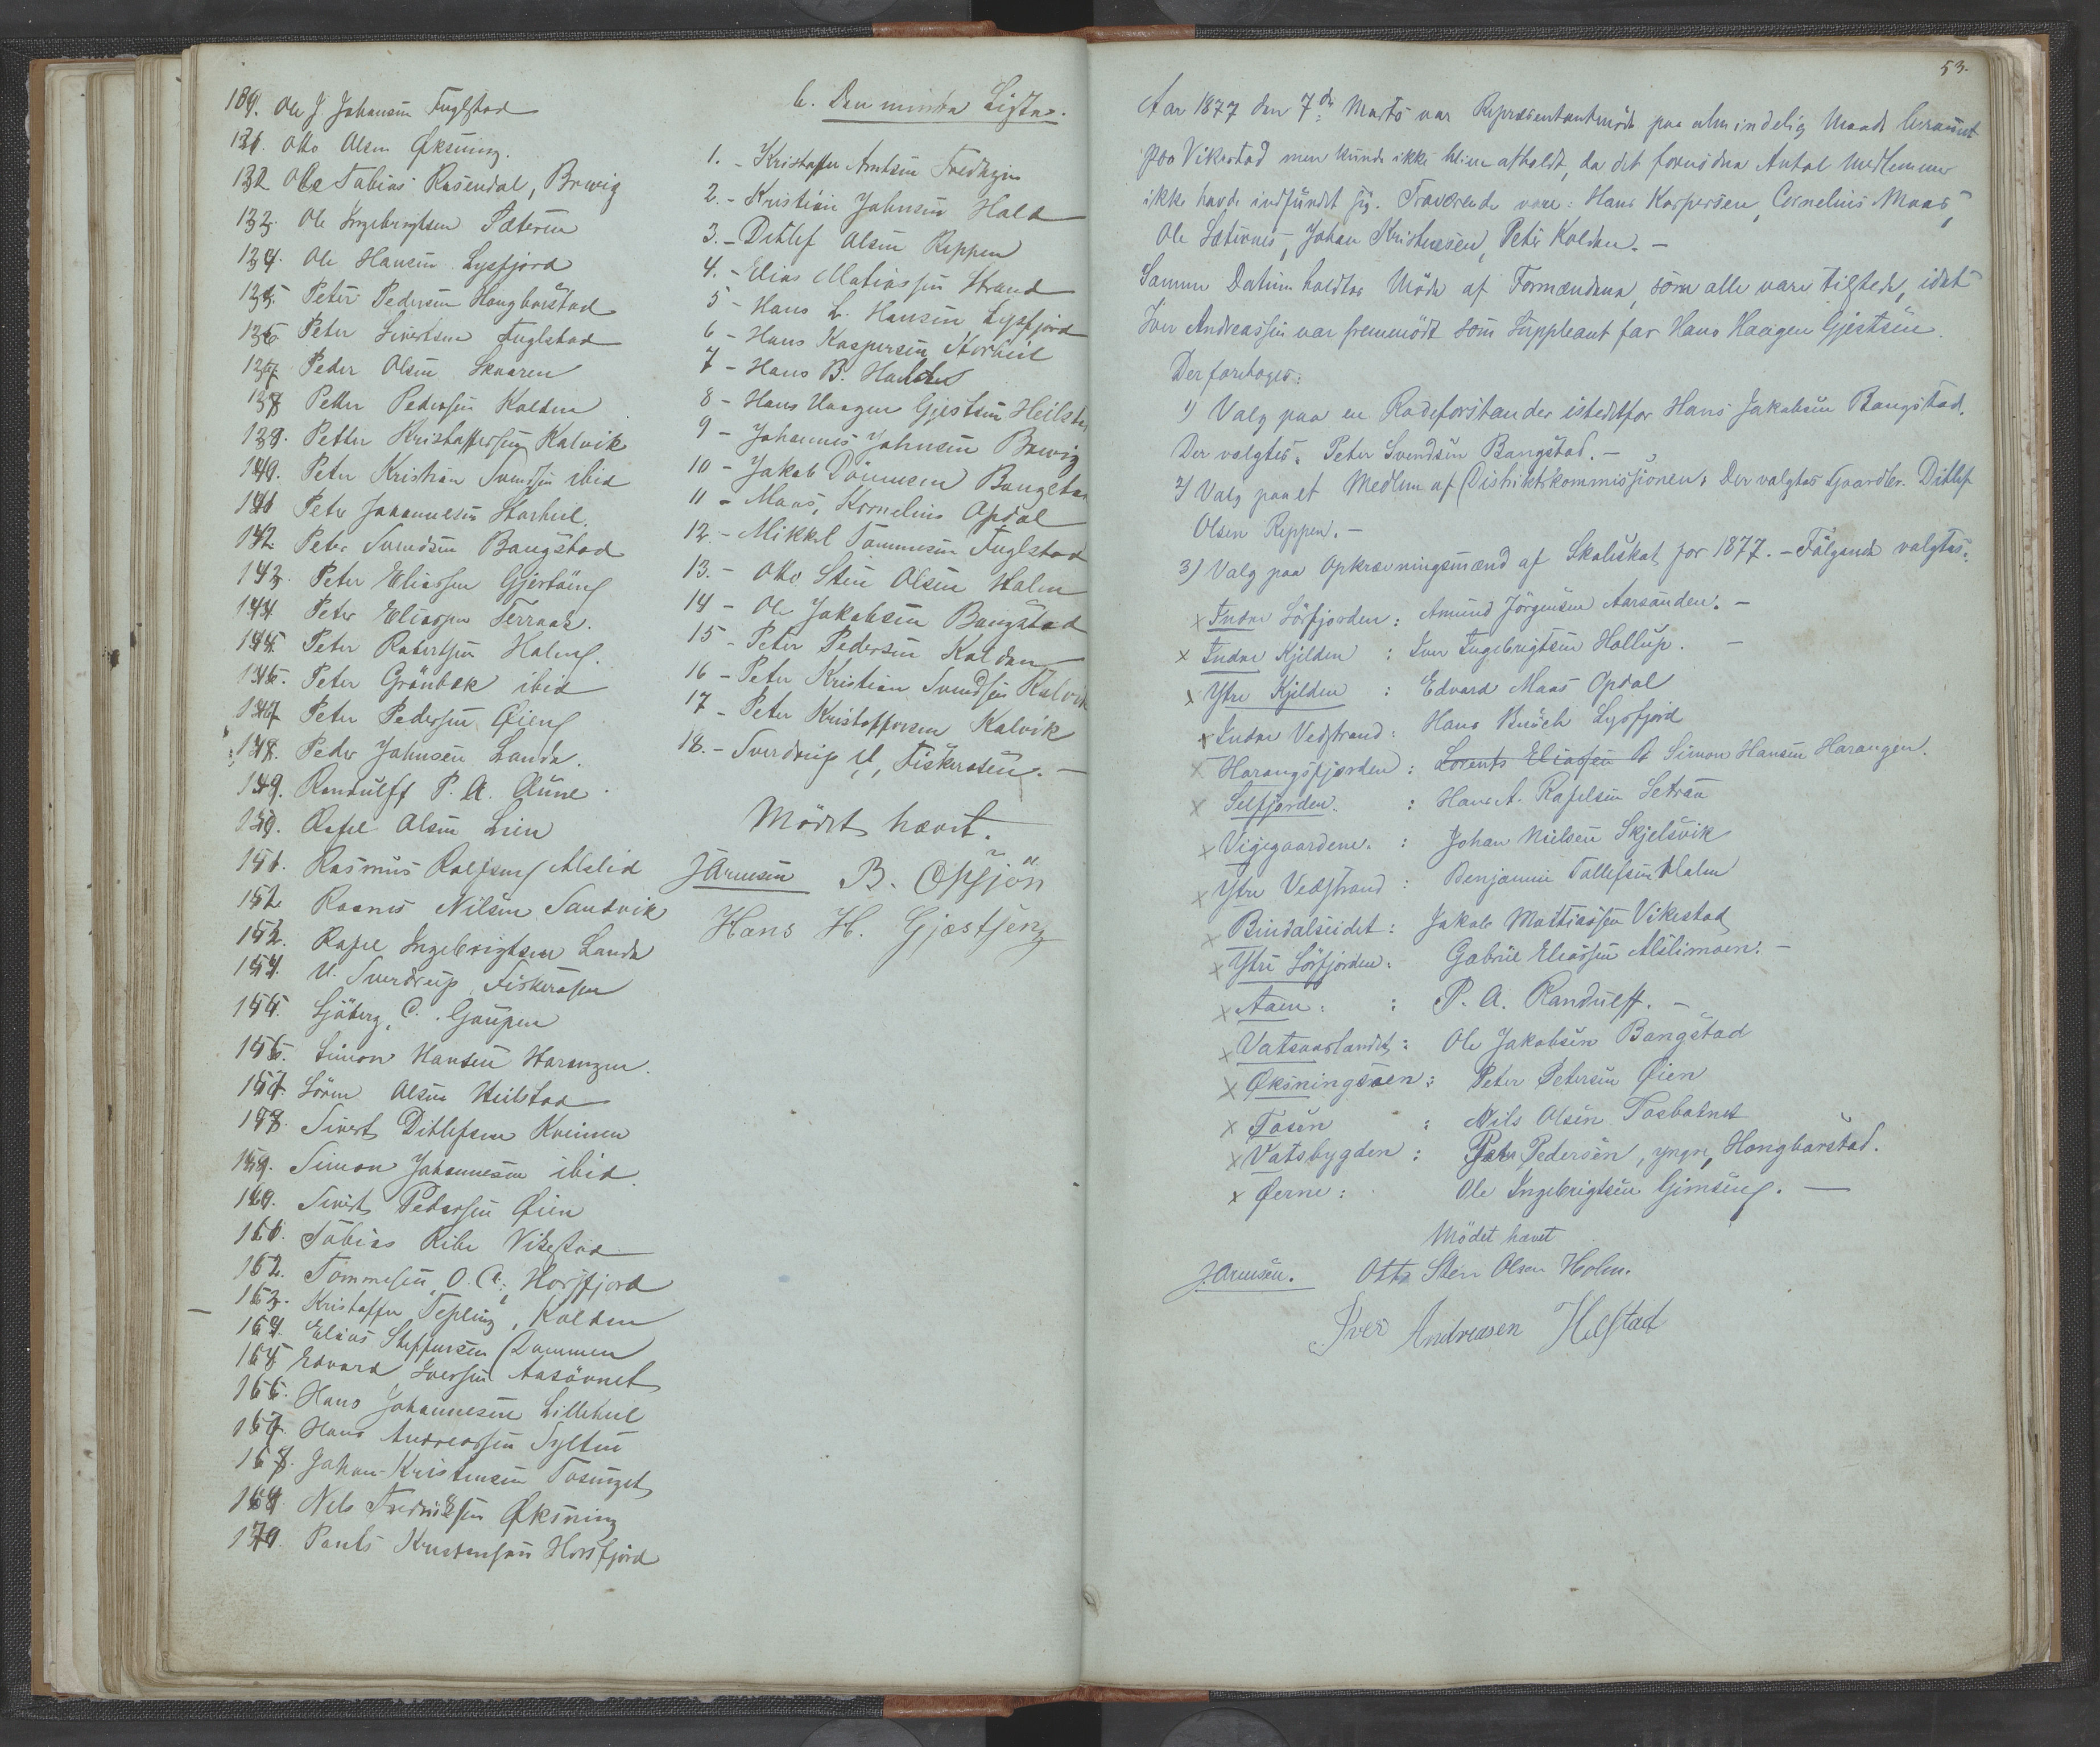 Ole J. Johansen Fuglstad
Otto Olsen Øksning.
132 Ole Tobias Rosendal, Brevig
133. Ole Ingebrigtsen Sæteren
134. Ole Hansen Lysfjord
135. Peter Pedersen Hongbarstad
136. Peter Sivertsen Fuglstad
137 Peder Olsen Skaaren
138 Petter Pedersen Kolden
139. Petter Kristoffersen Kalvik
140. Peter Kristian Svendsen ibid
141 Peter Johannesen Storheil.
142. Peter Svendsen Bangstad
143. Peter Eliassen
144 Peter Eliassen Terraak.
145. Peter Robertsen Holm.
146. Peter Grönbek ibid
147 Peter Pedersen Øien
148. Peder Johnsen Lande.
149. Randulff P. A. Aune.
150. Rafel Olsen Lien
151. Rasmus Rolfsen Alslid
152 Rasmus Nilsen Sandvik
153. Rafel Ingebrigtsen Lande
154. U. Sverdrup Fiskerosen
155. Sjöberg, C. Gaupen
156. Simon Hansen Harangen.
157. Sören Olsen Heilstad
158. Sivert Ditlefsen Kveinen
159. Simon Johannesen ibid.
160. Sivert Pedersen Øien
161. Tobias Ribe Vikestad
162. Tommesen, O. A., Horsfjord
163. Kristoffer Tepling, Kolden
164. Elias Steffensen Dammen
165 Edvard Iversen Aasövnet
166. Hans Johannesen Lilleheil
167. Hans Andreassen Sylten
168. Johan Kristensen Tosinget
169. Nels Fredriksen Øksning
170. Kristensen Horsfjord
b. Den mindre Liste.
1. - Kristoffer Arntsen
2. - Kristian Johnsen Hald
3. - Ditlef Olsen Reppen
4. - Elias Matiassen Strand
5 - Hans L. Hansen Lysfjord
6 - Hans Kaspersen Storheil
7 - Hans B.
8 - Hans Haagen Gjestsen Heilstad
9 - Johannes Johnsen Brevig
10 - Jakob Bangstad
11 - Maas, Kornelius Opdal
12. - Mikkel Tommesen Fuglstad
13. - Otto Sten Olsen Holm
14 - Ole Jakobsen Bangstad
15 - Peter Pedersen Kolden
16 - Peter Kristian Svendsen Kalvik
17 - Peter Kristoffersen Kalvik
18. - Sverdrup U, Fiskerosen. —
Mödet hævet.
JArnesen B. Opsjön
Hans H. Gjæstsen
53.
Aar 1877 den 7de Marts var Repræsentantmöde paa almindelig Maade berammet
paa Vikestad men kunde ikke blive afholdt, da det fornödne Antal Medlemmer
ikke havde indfundet sig. Fraværende vare: Hans Kaspersen, Cornelius Maas,
Ole Sæternes, Johan Kristensen, Peter Kolden. —
Samme Datum holdtes Möde af Formændene, som alle vare tilstede, idet
Iver Andreassen var fremmödt som Suppleant for Hans Haagen Gjestsen.
Der foretoges:
1) Valg paa en Rodeforstander istedetfor Hans Jakobsen Bangstad.
Der valgtes: Peter Svendsen Bangstad. —
2) Valg paa et Medlem af Distriktskommissionen: Der valgtes Gaardbr. Ditlef
Olsen Reppen. —
3) Valg paa Opkrævningsmænd af Skoleskat for 1877. - Fölgende valgtes:
x Indre Sörfjorden: Amund Jörgensen Aarsanden. —
x Indre Kjelden : Iver Ingebrigtsen Hollup. —
x Ytre Kjelden : Edvard Maas Opdal
x Indre Vedstrand: Hans Lysfjord
x Harangsfjorden: Lorents Eliasen Simon Hansen Harangen.
x Selfjorden. : Hans A. Rafelsen Setran
x Vigigaardene. : Johan Nielsen Skjelsvik
x Ytre Vedstrand : Benjamin Tollefsen Holm
x Bindalseidet: Jakob Mattiassen Vikestad
x Ytre Sörfjorden: Gabriel Eliassen Alslimoen. —
x Aaen: : P. A. Randulff. —
x Vatsaaslandet: Ole Jakobsen Bangstad
x Øksningsöen: Peter Petersen Øien
x Tosen : Nils Olsen Tosbotnet
x Vatsbygden : Peter Pedersen, yngre, Hongbarstad.
x Øerne: Ole Ingebrigtsen —
Mödet hævet
JArnesen. Otto Sten Olsen Holm.
Iver Andreasen Helstad